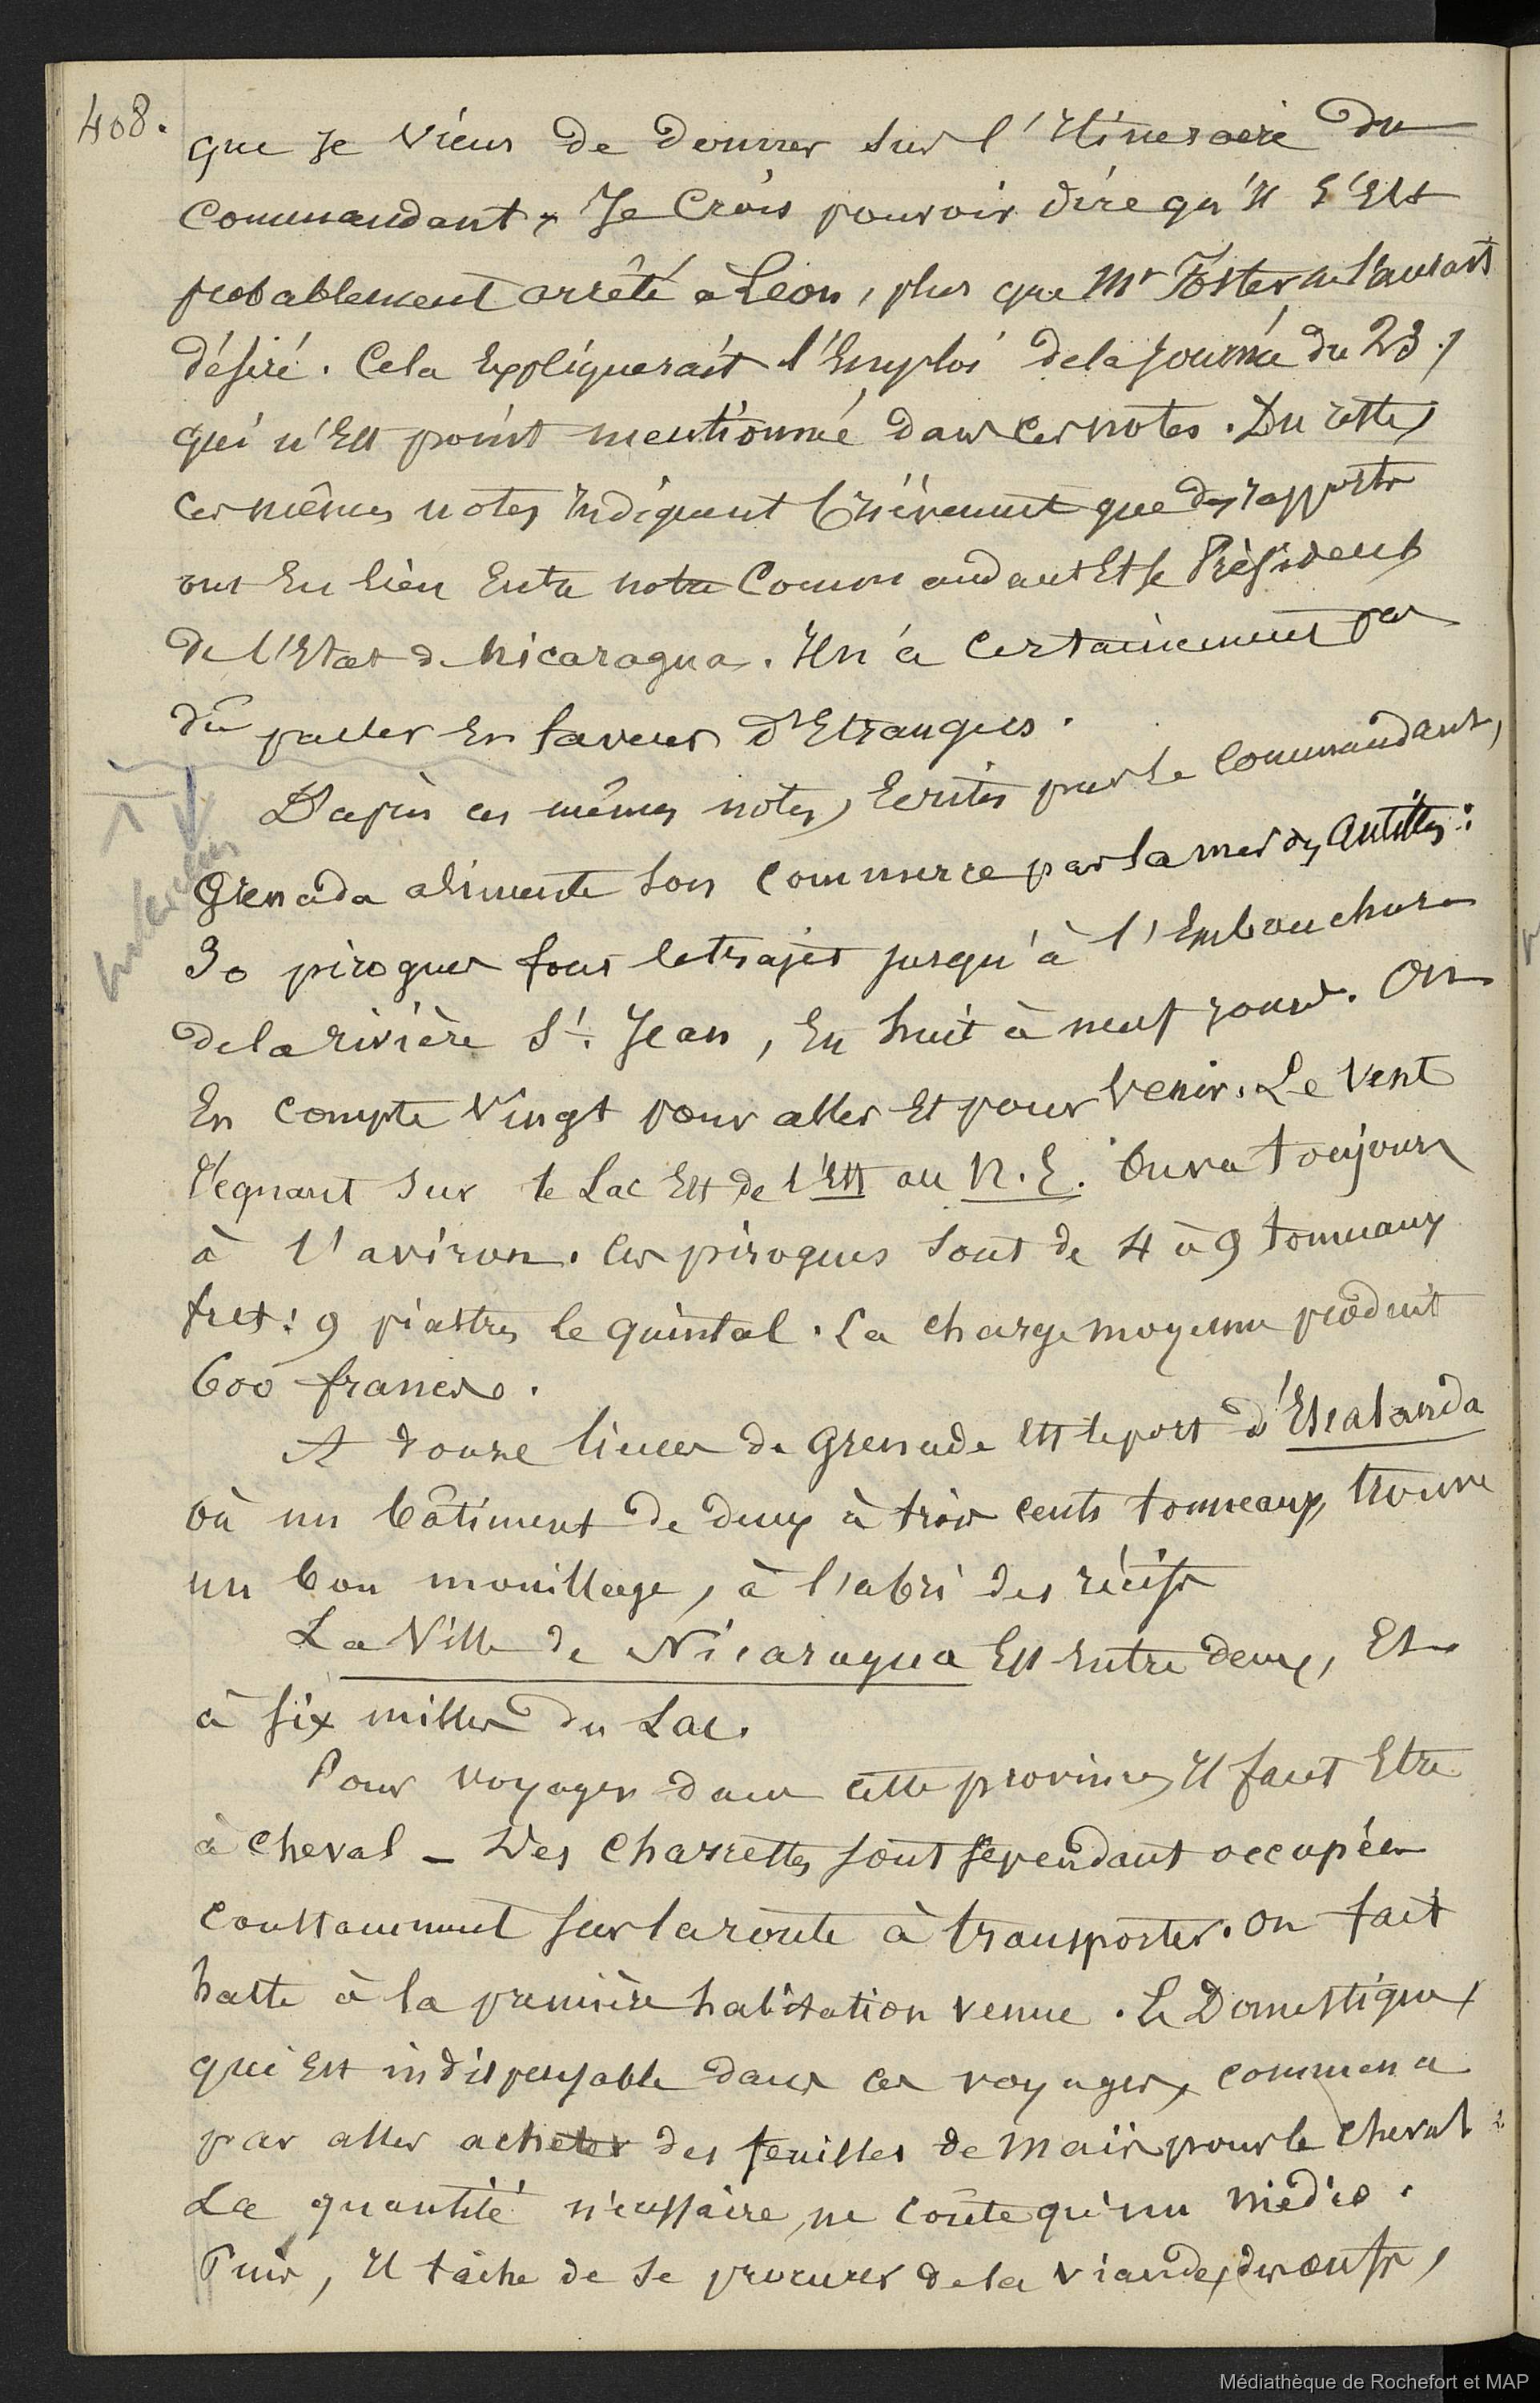 408.
que je viens de donner sur l'Itineraire du
Commandant, Je Crois pouvoir dire qu'il s'est
probablement arrêté à Leon, plus que Mr Foster ne l'aurait
désiré. Cela Expliquerait l'Emploi de la journée du 23,
qui n'Est point mentionné dans ces notes. Du reste,
Ces mêmes notes Indiquent brièvement que des rapports
ont Eu lieu Entre notre Commandant Et le Président
de l'Etat de Nicaragua. Il n'a Certainement pas
dû parler En faveur d'Etrangers.
D'après ces mêmes notes, Ecrites par le Commandant,
Grenada alimente son Commerce par la mer des Antilles:
30 pirogues font le trajet jusqu'à l'Embouchure
de la rivière St. Jean, En huit à neuf jours. On
En compte Vingt pour aller Et pour Venir. Le Vent
régnant sur le Lac Est de l'Est au N.E. On va toujours
à l'aviron. Ces pirogues sont de 4 à 9 tonneaux
fret: 9 piastres le quintal. La charge moyenne produit
600 francs.
A douze lieues de Grenade Est le port d'Escalanda
où un bâtiment de deux à trois cents tonneaux, trouve
un bon mouillage, à l'abri des récifs
La Ville de Nicaragua Est Entre deux, Et
à six milles du Lac.
Pour voyager dans cette province, Il faut Etre
à Cheval - Des Charrettes sont cependant occupées
Constamment sur la route à transporter. On fait
halte à la première habitation venue. Le Domestique,
qui Est indispensable dans ces voyages, commence
par aller acheter des feuilles de maïs pour le Cheval:
La quantité nécessaire, ne Coûte qu'un médio.
Puis, Il tâche de se procurer de la viande, des œufs,
Médiathèque de Rochefort et MAP